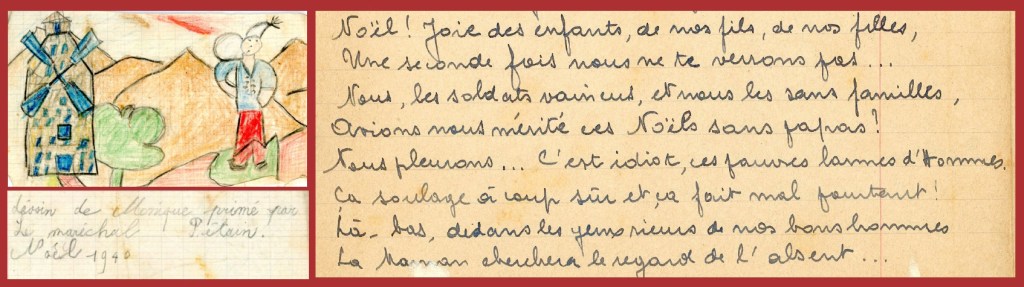 Dessin de Monique primé par
Le maréchal Pétain.
Noël 1940
Noël! Joie des enfants, de nos fils, de nos filles,
Une seconde fois nous ne te verrons pas...
Nous, les soldats vaincus, et nous les sans familles,
Avions nous mérité ces Noëls sans papas?
Nous pleurons... C'est idiot, ces pauvres larmes d'Hommes.
Ca soulage à coup sûr et ça fait mal pourtant!
Là-bas, dedans les yeux rieurs de nos bons hommes
La Maman cherchera le regard de l'absent...